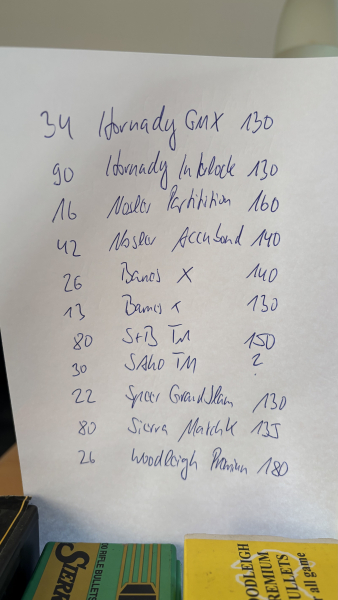 34 Hornady GMX 130
90 Hornady Interlock 130
16 Nosler Partitition 160
42 Nosler Accubond 140
26 Barnes X 140
13 Barnes X 130
80 S+B TM 150
30 SAko TM ?
22 Speer GrandSlam 130
80 Sierra MatchK 135
26 Woodleigh Premium 180
RIFLE BULLETS
SIERR
OODLEIGH
PREMIUM
BULLETS
r all game